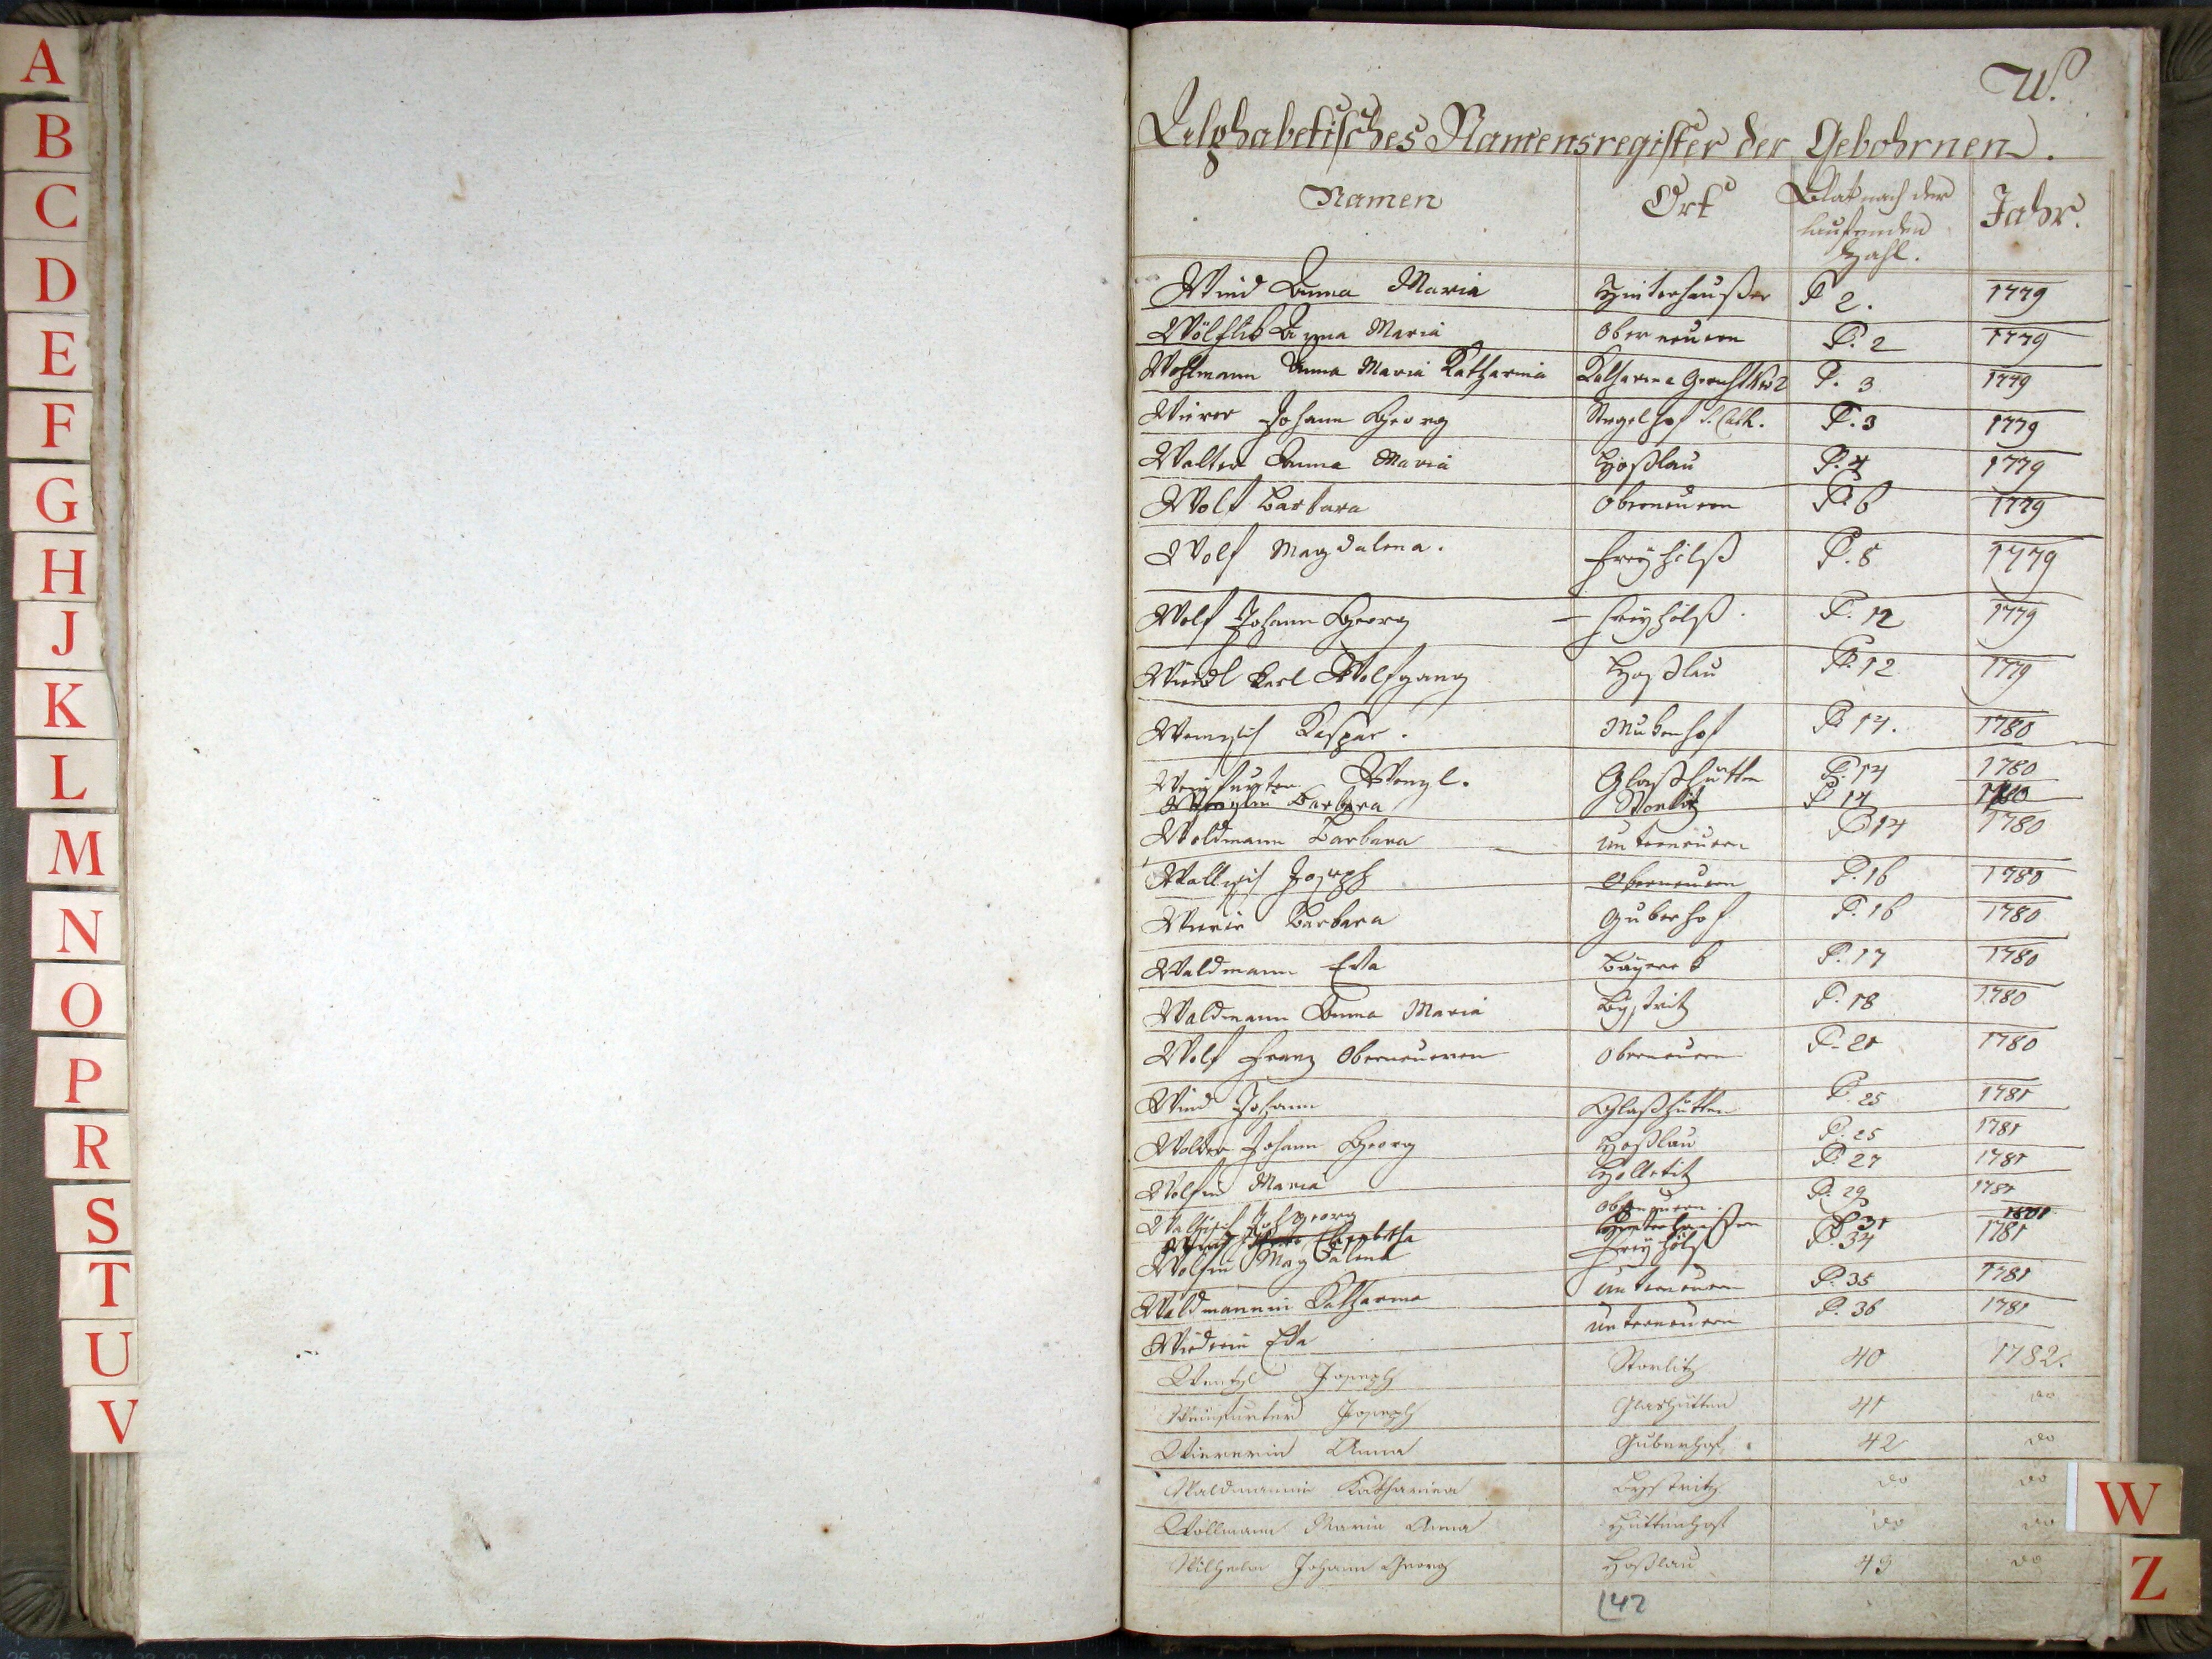 A
B
C
D
E
F
G
H
J
K
L
M
N
O
P
R
S
T
U
V
W.
Alphabetisches Namensregister der Gebohrnen.
Namen Ort Blat nach der laufenden Zahl. Jahr.
Wind Anna Maria Hinterhaußer P 2. 1779
Wölfl Anna Maria Oberneuern P. 2 1779
Wohlmann Anna Maria Katharina Katharina Gericht P. 3 1779
Wierer Johann Georg Stegelhof S. Cath. P. 3 1779
Walter Anna Maria Hoßlau P. 4 1779
Wolf Barbara Oberneuern P 6 1779
Wolf Magdalena. Freyhilß P. 8 1779
Wolf Johann Georg — Freyhölß. P. 12 1779
Karl Wolfgang Hoßlau P. 12 1779
Kaspar. Mukenhof P 14. 1780
Weinfurter Wenzl. Glaßhütten P. 14 1780
Barbara Storlitz P 14 1780
Woldmann Barbara Unterneuern P 14 1780
Joseph Oberneuern P. 16 1780
Wierin Barbara Guberhof P. 16 1780
Waldmann Eva Bayerek P. 17 1780
Waldmann Anna Maria Bystritz P. 18 1780
Wolf Franz Oberneuern Oberneuern P. 21 1780
Wind Johann Glaßhütten P. 25 1781
Wolter Johann Georg Hoßlau P. 25 1781
Wolfin Maria Holletitz P. 27 1781
Joh Georg Oberneuern. P. 29 1781
Elisabetha Hinterhaußern P. 31 1781
Wolfin Magdalena Freyhölß P. 34 1781
Waldmannin Katharina Unterneuern P. 35 1781
Widrin Eva Unterneuern P. 36 1781
Wentzl Joseph Storlitz 40 1782.
Weinfurter Joseph Glashütten 41 do
Wiererin Anna Guberhof. 42 do
Waldmannin Katharina Bystritz do do
Wöllmann Maria Anna Hüttenhof do do
Wilhelm Johann Georg Hoßlau 43 do
142
W
Z